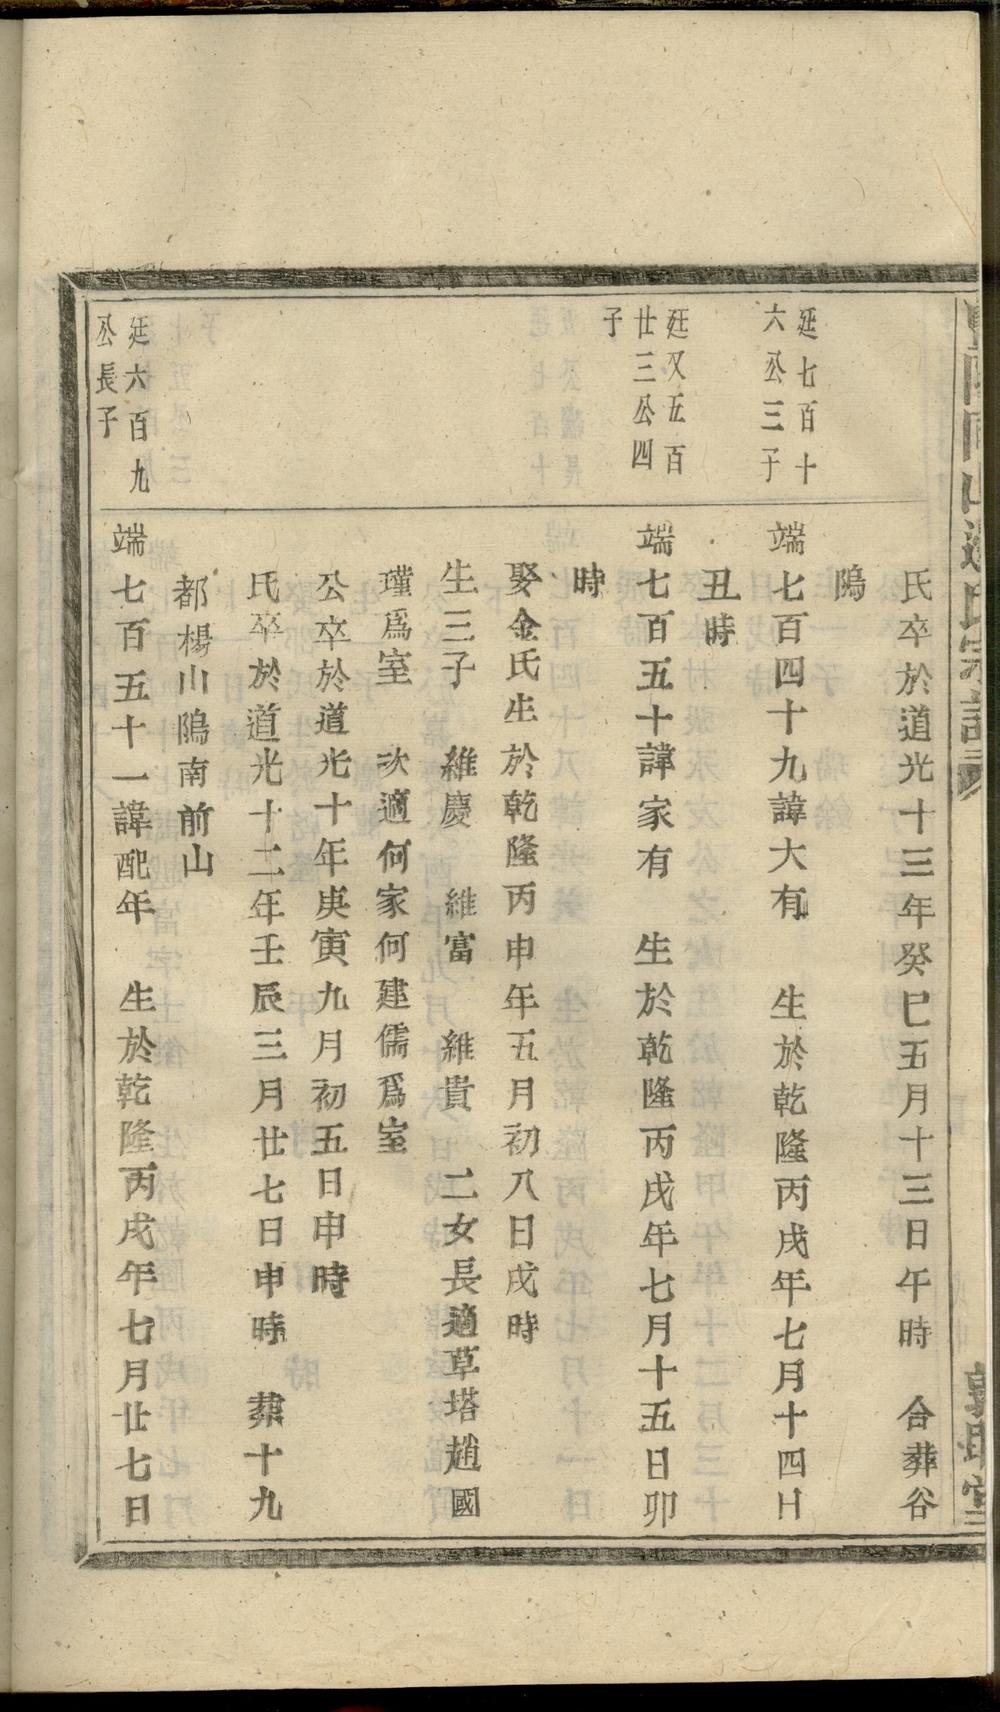 氏卒於道光十三年癸巳五月十三日午時 合葬谷
隖
廷七百十
六公三子
端七百四十九諱大有 生於乾隆丙戌年七月十四日
丑時
廷又五百
廿三公四
子
端七百五十諱家有 生於乾隆丙戌年七月十五日卯
時
娶金氏生於乾隆丙申年五月初八日戌時
生三子 維慶 維富 維貴 二女長適草塔趙國
瑾爲室 次適何家何建儒爲室
公卒於道光十年庚寅九月初五日申時
氏卒於道光十二年壬辰三月廿七日申時 葬十九
都楊山隖南前山
廷六百九
公長子
端七百五十一諱配年 生於乾隆丙戌年七月廿七日